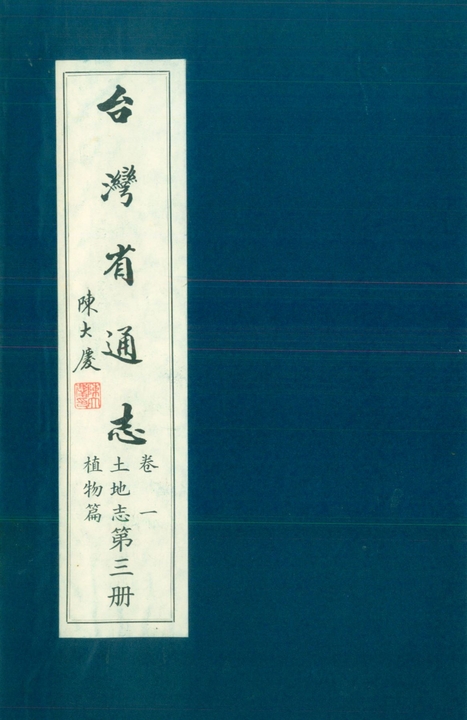 台灣省通志
陳大慶
卷一
土地志第三册
植物篇